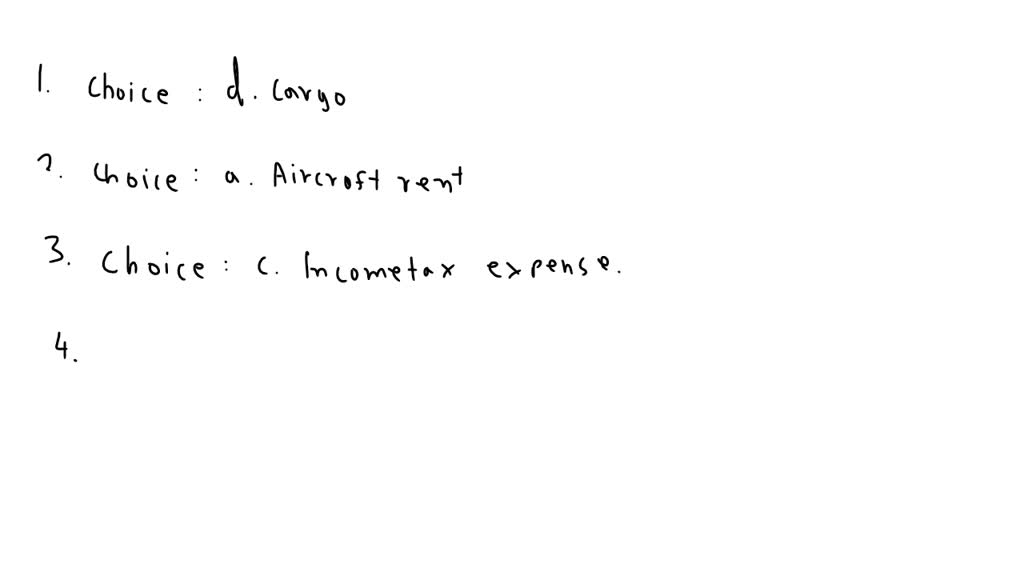 1. Choice : d. Cargo
2. Choice : a. Aircroft rent
3. Choice : c. Incometax expense.
4.